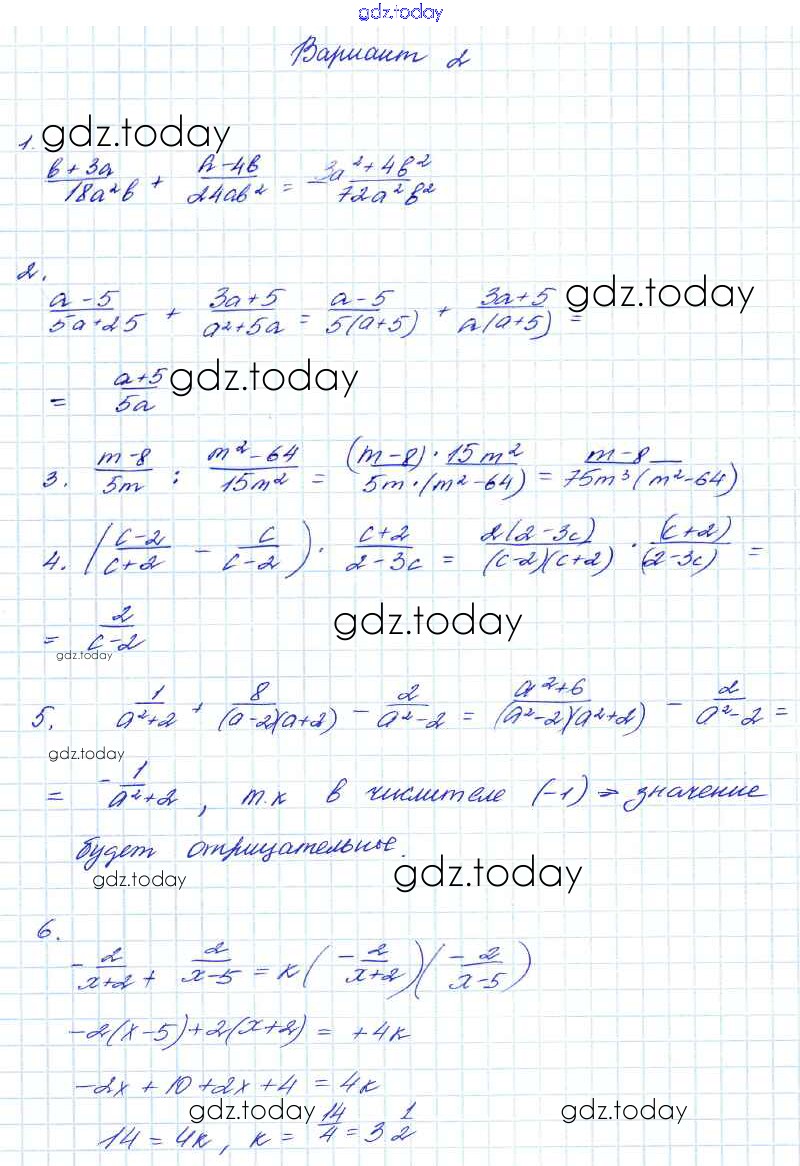 gdz.today
Вариант 2
1. gdz.today
(b+3a)/(18a²b) + (a-4b)/(24ab²) = (3a²+4b²)/(72a²b²)
2.
(a-5)/(5a+25) + (3a+5)/(a²+5a) = (a-5)/(5(a+5)) + (3a+5)/(a(a+5)) = gdz.today
= (a+5)/(5a) gdz.today
3. (m-8)/(5m) : (m²-64)/(15m²) = ((m-8)·15m²)/(5m·(m²-64)) = (m-8)/(75m³(m²-64))
4. ((c-2)/(c+2) - c/(c-2)) · (c+2)/(2-3c) = (2(2-3c))/((c-2)(c+2)) · (c+2)/(2-3c) =
= 2/(c-2) gdz.today
gdz.today
5. 1/(a²+2) + 8/((a-2)(a+2)) - 2/(a²-2) = (a²+6)/((a²-2)(a²+2)) - 2/(a²-2) =
gdz.today
= -1/(a²+2), т.к в числителе (-1) ⇒ значение
будет отрицательные.
gdz.today gdz.today
6.
-2/(x+2) + 2/(x-5) = k(-2/(x+2))(-2/(x-5))
-2(x-5)+2(x+2) = +4k
-2x+10+2x+4 = 4k
gdz.today gdz.today
14 = 4k, k = 14/4 = 3 1/2